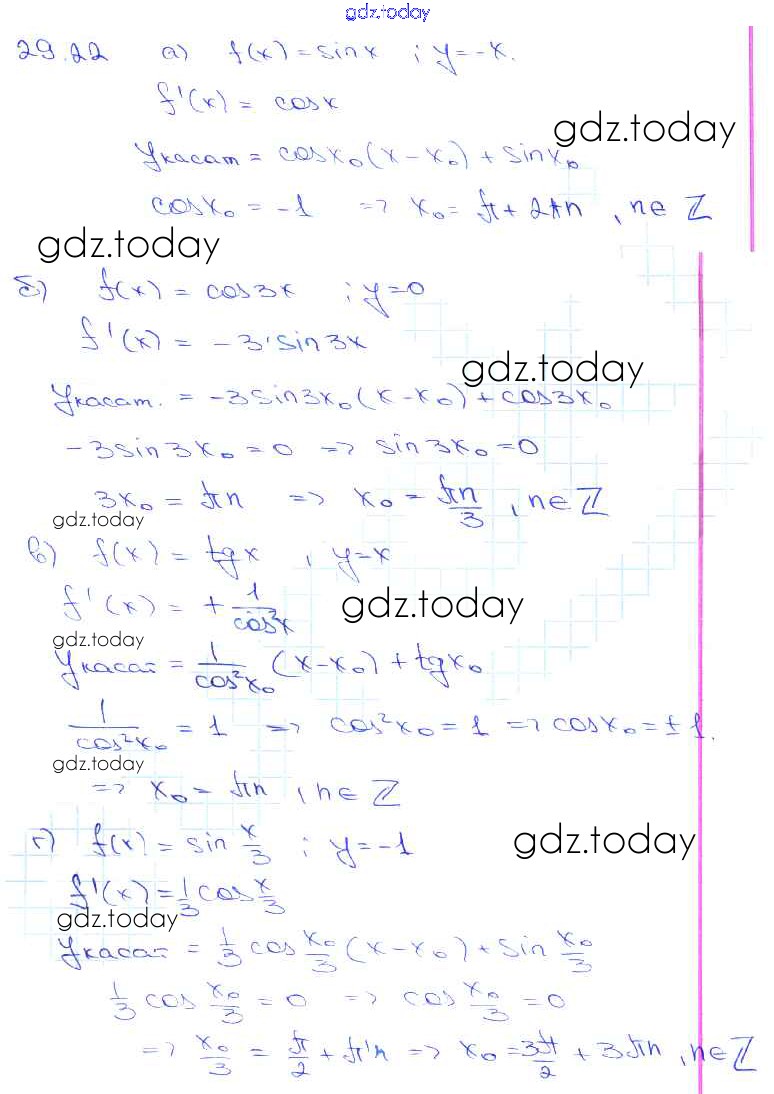 gdz.today
29.22 а) f(x) = sinx ; y=-x.
f'(x) = cosx
gdz.today
Yкасат = cosx₀(x-x₀) + sinx₀
cosx₀ = -1 => x₀ = π + 2πn , n∈ℤ
gdz.today
б) f(x) = cos3x ; y=0
f'(x) = -3·sin3x
gdz.today
Yкасат. = -3sin3x₀(x-x₀) + cos3x₀
-3sin3x₀ = 0 => sin3x₀ = 0
3x₀ = πn => x₀ = πn/3 , n∈ℤ
gdz.today
в) f(x) = tgx , y=x
f'(x) = + 1/cos²x
gdz.today
gdz.today
Yкасат = 1/cos²x₀ (x-x₀) + tgx₀
1/cos²x₀ = 1 => cos²x₀ = 1 => cosx₀ = ±1.
gdz.today
=> x₀ = πn , n∈ℤ
г) f(x) = sin x/3 ; y=-1
gdz.today
f'(x) = 1/3 cos x/3
gdz.today
Yкасат = 1/3 cos x₀/3 (x-x₀) + sin x₀/3
1/3 cos x₀/3 = 0 => cos x₀/3 = 0
=> x₀/3 = π/2 + πn => x₀ = 3π/2 + 3πn , n∈ℤ